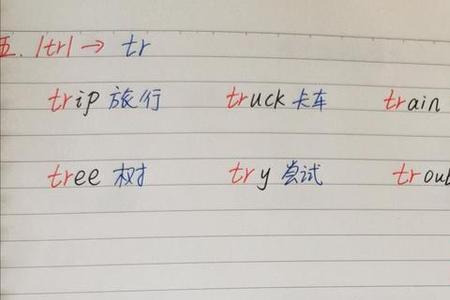 五. |tr| → tr
trip 旅行 truck 卡车 train
tree 树 try 尝试